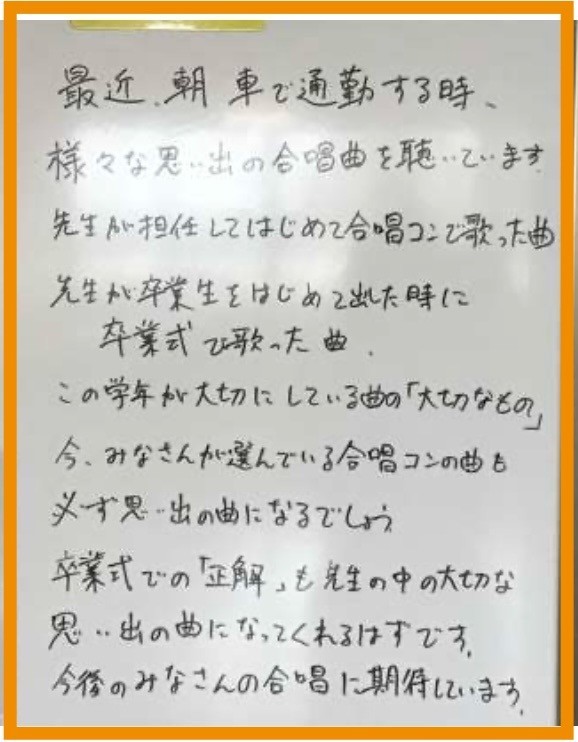 最近、朝 車で通勤する時、
様々な思い出の合唱曲を聴いています。
先生が担任してはじめて合唱コンで歌った曲
先生が卒業生をはじめて出した時に
卒業式で歌った曲、
この学年が大切にしている曲の「大切なもの」
今、みなさんが選んでいる合唱コンの曲も
必ず思い出の曲になるでしょう
卒業式での「正解」も先生の中の大切な
思い出の曲になってくれるはずです。
今後のみなさんの合唱に期待しています。